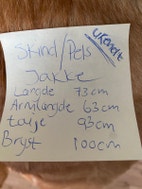 Ukendt
Skind/Pels
Jakke
Længde 73cm
Armlængde 63cm
talje 93cm
Bryst 100cm